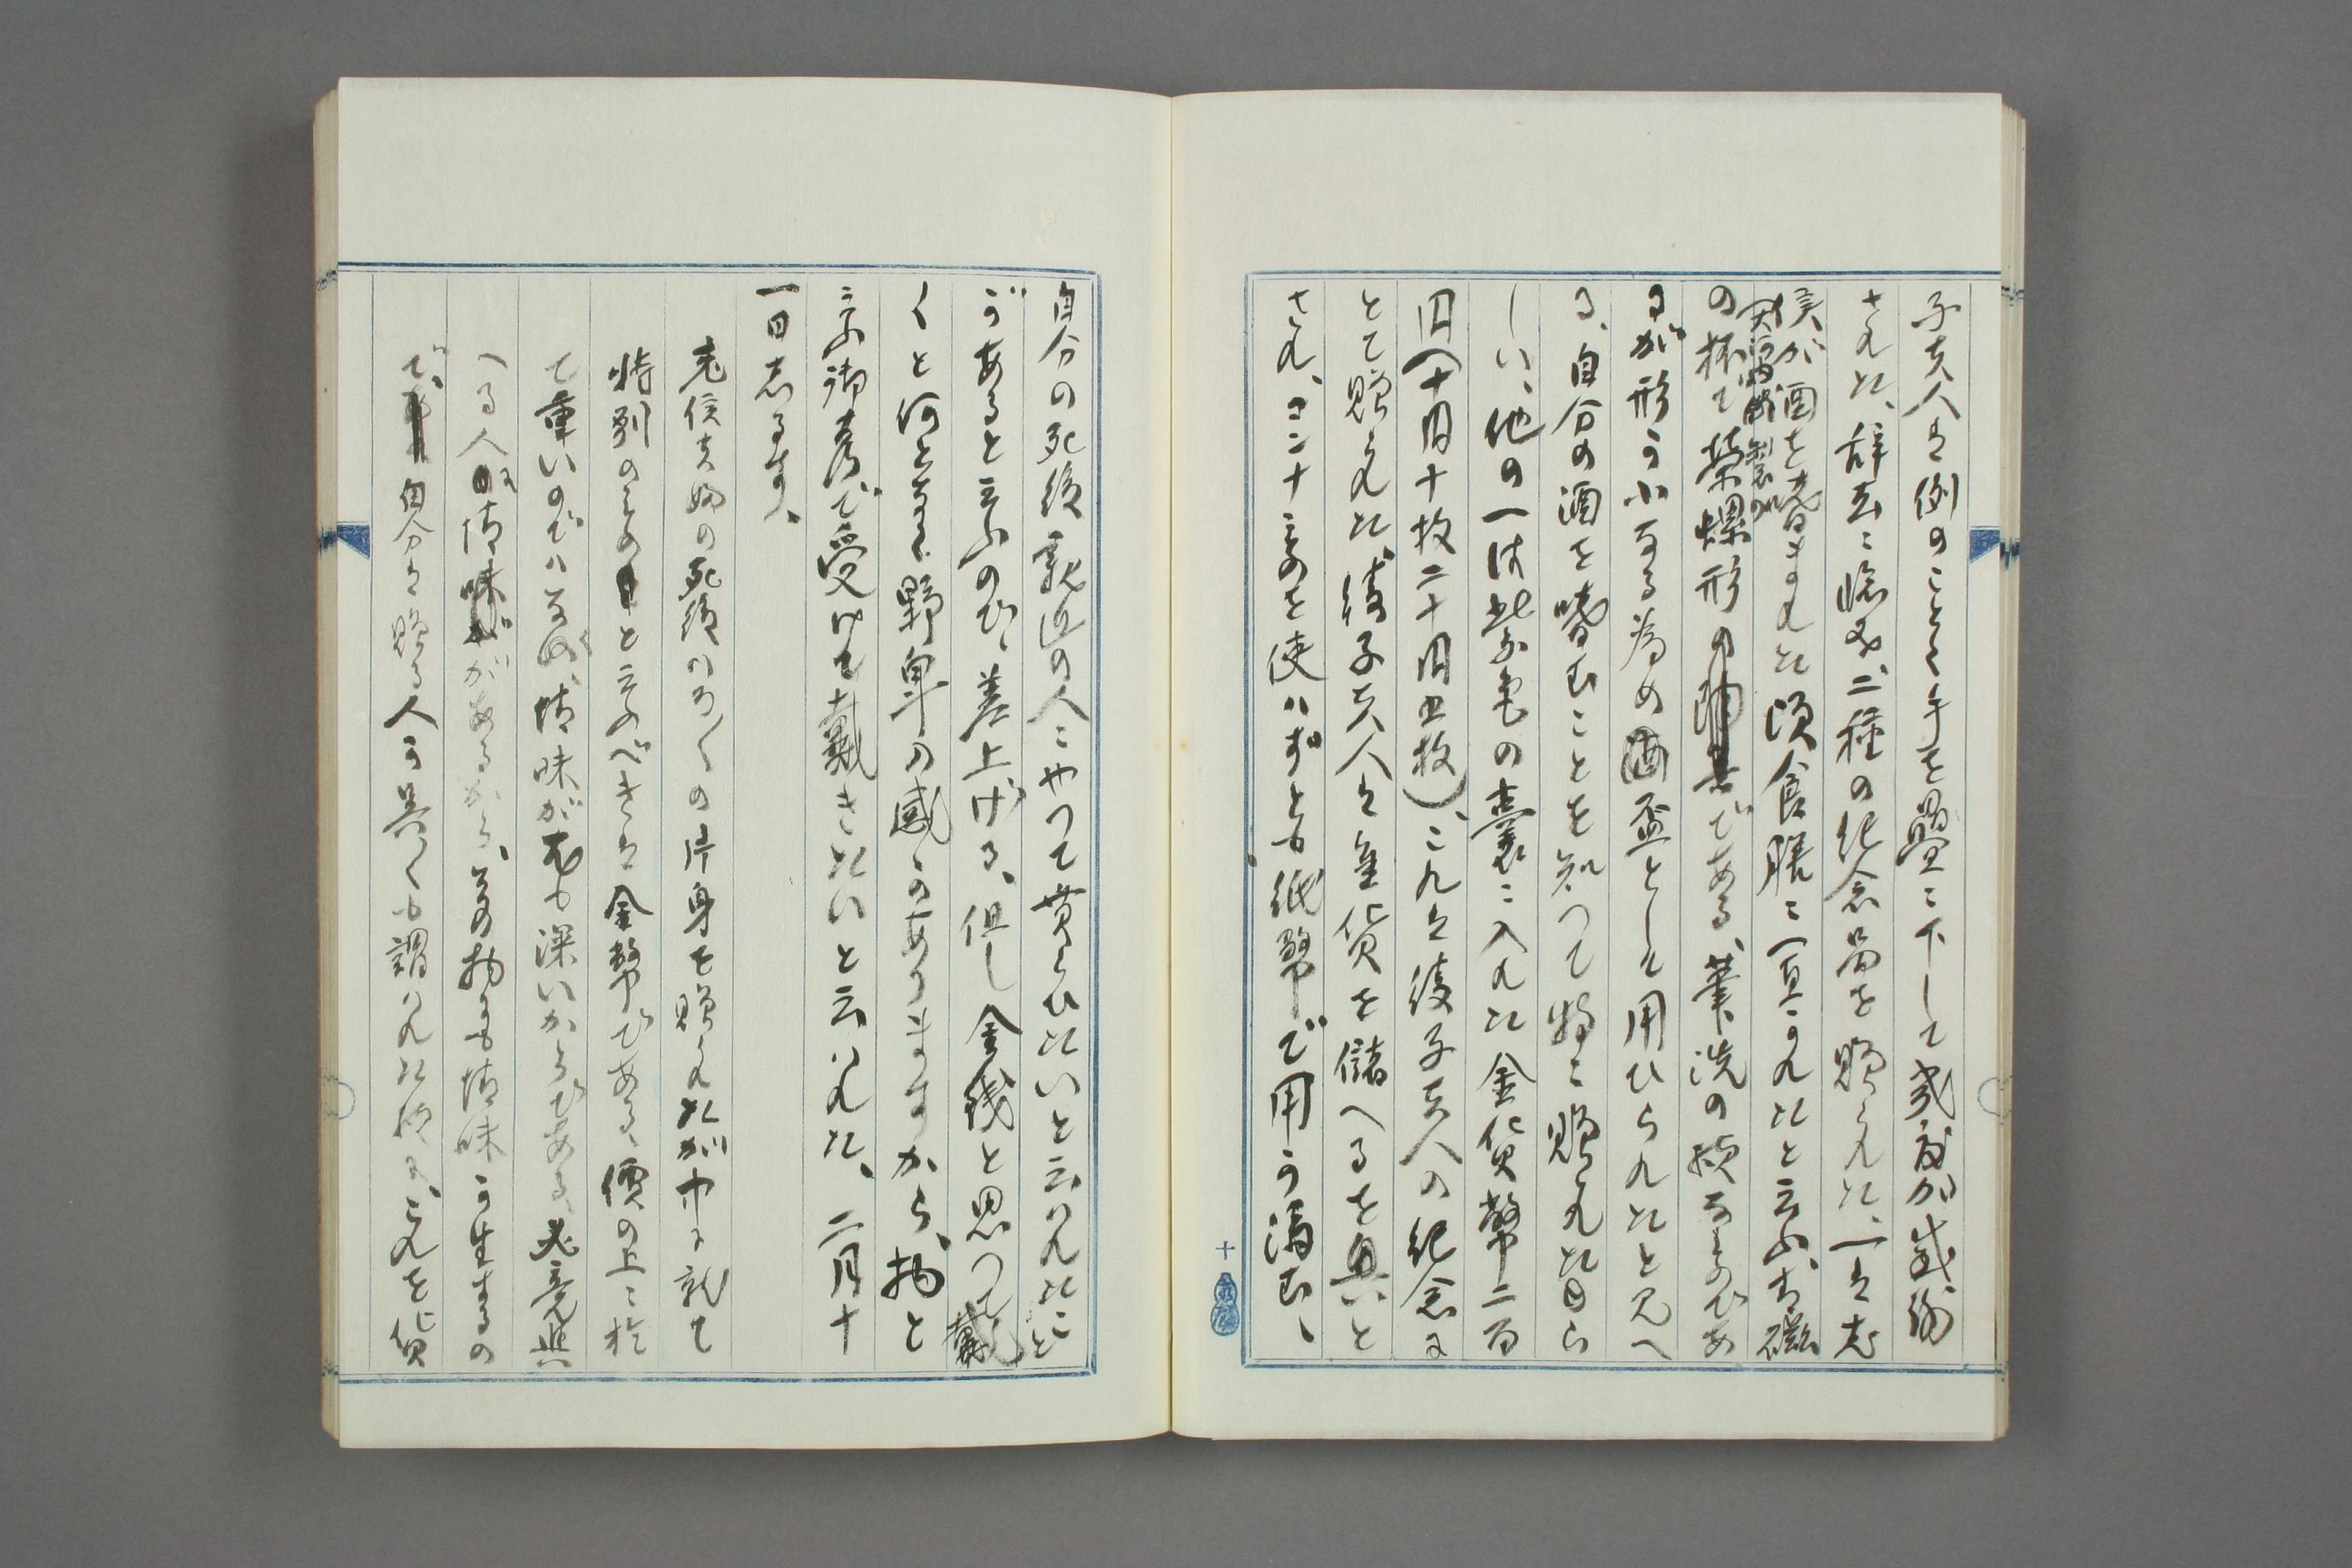 子夫人は例のごとく手を畳に下して幾度か感謝
された、辞去に臨み、二種の紀念品を贈られた、一は老
侯が酒を嗜まれた頃食膳に具へられたと云ふ、古磁
の杯で栄螺形のである、筆洗の様なものであ
るが形の小なる為め酒盃として用ひられたと見へ
る、自分の酒を嗜むことを知つて特に贈られた由ら
しい、他の一は紫色の囊に入れた金貨幣二百
円(十円十枚二十円五枚)、これは綾子夫人の紀念に
とて贈られた、綾子夫人は金貨を儲へるを奥いと
され、コンナものを使はずとも紙幣で用う済む、
自分の死後親近の人にやつて貰らひたいと云はれたこと
があると云ふので、差上げる、但し金銭と思つて戴
くと何となく野卑の感じのありますから、物と
云ふ御考で受けて戴きたいと云はれた、二月十
一日志るす、
老侯夫婦の死後いろ〱の片身を贈られたが中に就て
特別のものと云ふべきは金幣である、価の上に於
て重いのではなく、情味が尤も深いからである、必竟与
へる人に情味があるから、其の物にも情味の生するの
で、自分は贈る人の呉々も謂はれた様に、これを貨